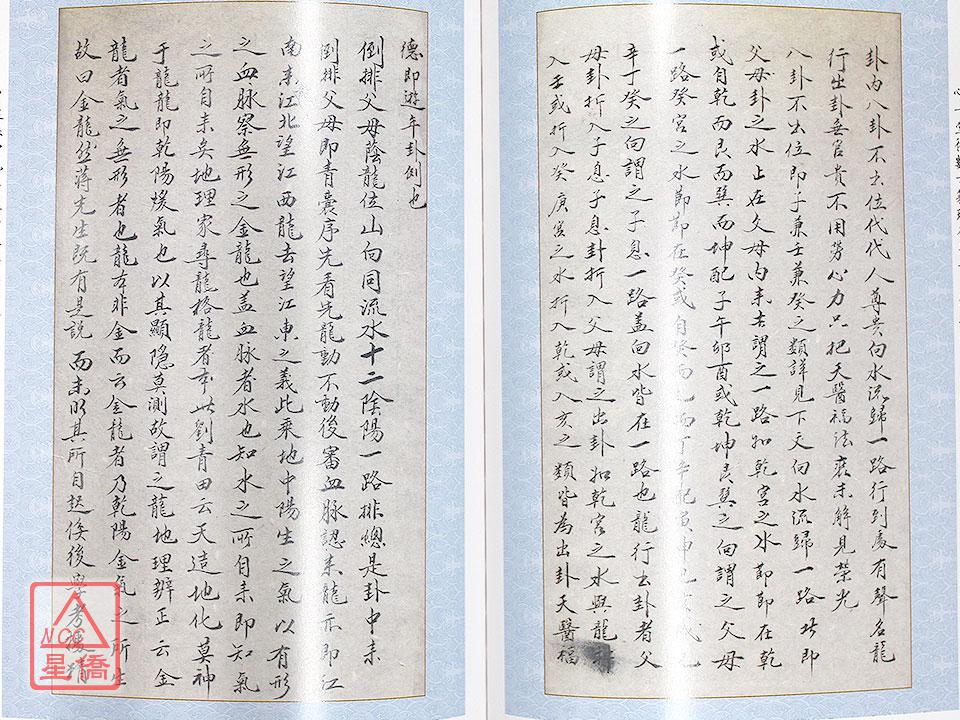 卦內八卦不出位代代人尊貴向水流歸一路行到處有聲名龍
行出卦無官貴不用勞心力只把天醫福法裝未解見榮光
八卦不出位即子兼壬兼癸之類詳見下文向水流歸一路此即
父母卦之水止在父母內來去謂之一路如乾宮之水節即在乾
或自乾而艮而巽而坤配子午卯酉或乾坤艮巽之向謂之父母
一路癸宮之水節節在癸或自癸而而丁辛配寅申巳
辛丁癸之向謂之子息一路蓋向水皆在一路也龍行出卦者父
母卦折入子息子息卦折入父母謂之出卦如乾宮之水與龍
入壬或折入癸庚宮之水折入乾或入亥之類皆為出卦天醫福
德即遊年卦例也
倒排父母蔭龍位山向同流水十二陰陽一路排總是卦中來
倒排父母即青囊序先看先龍動不動後審血脉認來龍亦即江
南來江北望江西龍去望江東之義此乘地中陽生之氣以有形
之血脉察無形之金龍也蓋血脉者水也知水之所自來即知氣
之所自來矣地理家尋龍格龍者本此劉青田云天造地化莫神
于龍龍即乾陽煖氣也以其顯隐莫測故謂之龍地理辨正云金
龍者氣之無形者也龍本非金而云金龍者乃乾陽金氣之所生
故曰金龍然蔣先生既有是說而未明其所自起俟後學考
NCC
星僑